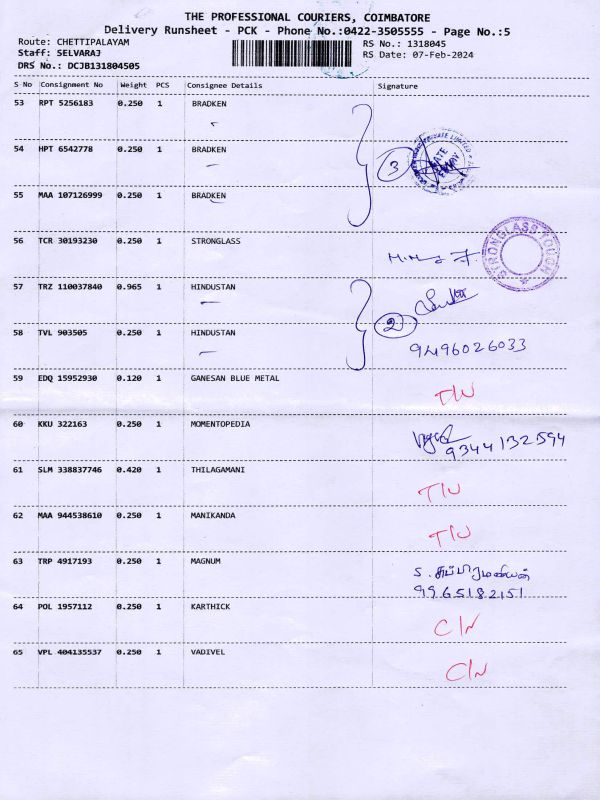 THE PROFESSIONAL COURIERS, COIMBATORE
Delivery Runsheet - PCK - Phone No.:0422-3505555 - Page No.:5
Route: CHETTIPALAYAM
RS No.: 1318045
Staff: SELVARAJ
RS Date: 07-Feb-2024
DRS No.: DCJB131804505
S No Consignment No Weight PCS Consignee Details Signature
53 RPT 5256183 0.250 1 BRADKEN
54 HPT 6542778 0.250 1 BRADKEN 3
55 MAA 107126999 0.250 1 BRADKEN
56 TCR 30193230 0.250 1 STRONGLASS
STRONGLASS TOUGH
57 TRZ 110037840 0.965 1 HINDUSTAN
58 TVL 903505 0.250 1 HINDUSTAN 2
9496026033
59 EDQ 15952930 0.120 1 GANESAN BLUE METAL T/U
60 KKU 322163 0.250 1 MOMENTOPEDIA
9344132594
61 SLM 338837746 0.420 1 THILAGAMANI T/U
62 MAA 944538610 0.250 1 MANIKANDA T/U
63 TRP 4917193 0.250 1 MAGNUM
S. சுப்பிரமணியன்
9965182151
64 POL 1957112 0.250 1 KARTHICK C/N
65 VPL 404135537 0.250 1 VADIVEL C/N